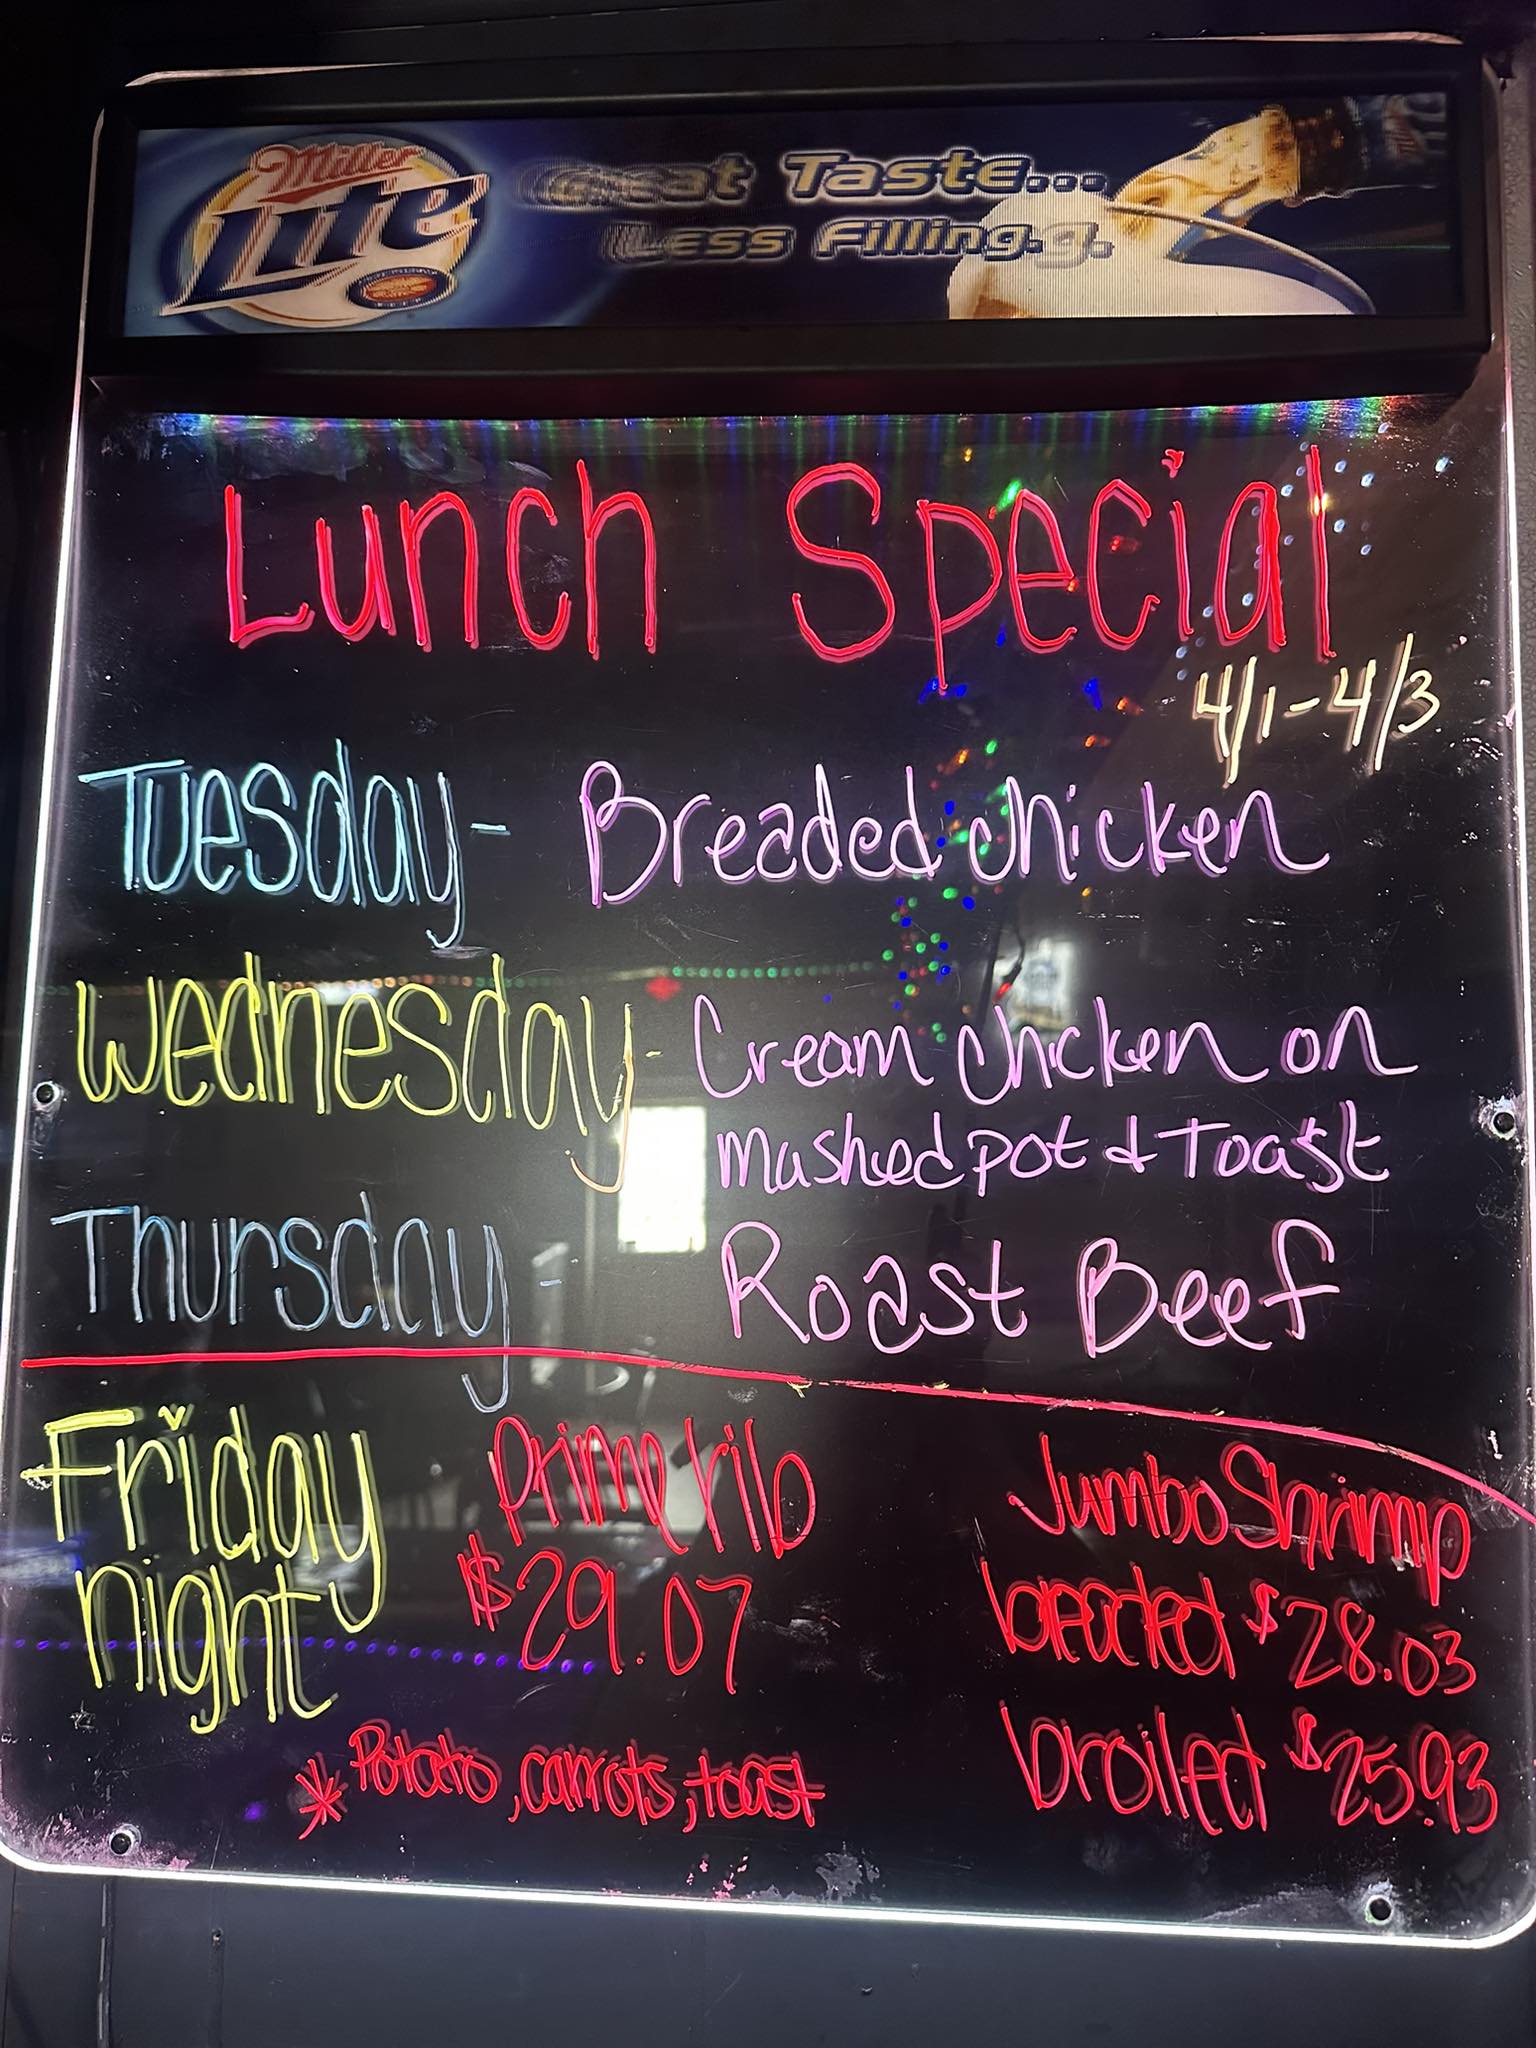 Miller
Lite
Great Taste...
Less Filling.
Lunch Special
4/1-4/3
Tuesday - Breaded chicken
Wednesday - Cream chicken on
mashed pot & Toast
Thursday - Roast Beef
Friday
night
Prime rib
$29.07
* Potato, carrots, toast
Jumbo Shrimp
breaded $28.03
broiled $25.93